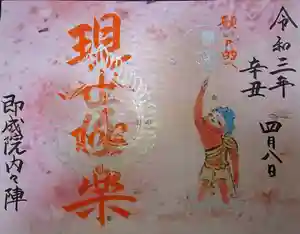 令和三年
辛丑
四月八日
願い的へ
現世極楽
即成院内々陣